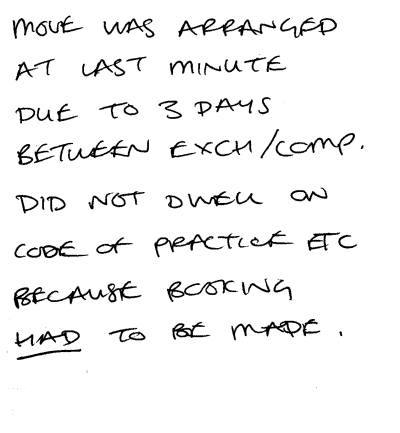 MOVE WAS ARRANGED
AT LAST MINUTE
DUE TO 3 DAYS
BETWEEN EXCH/COMP.
DID NOT DWELL ON
CODE OF PRACTICE ETC
BECAUSE BOOKING
HAD TO BE MADE.